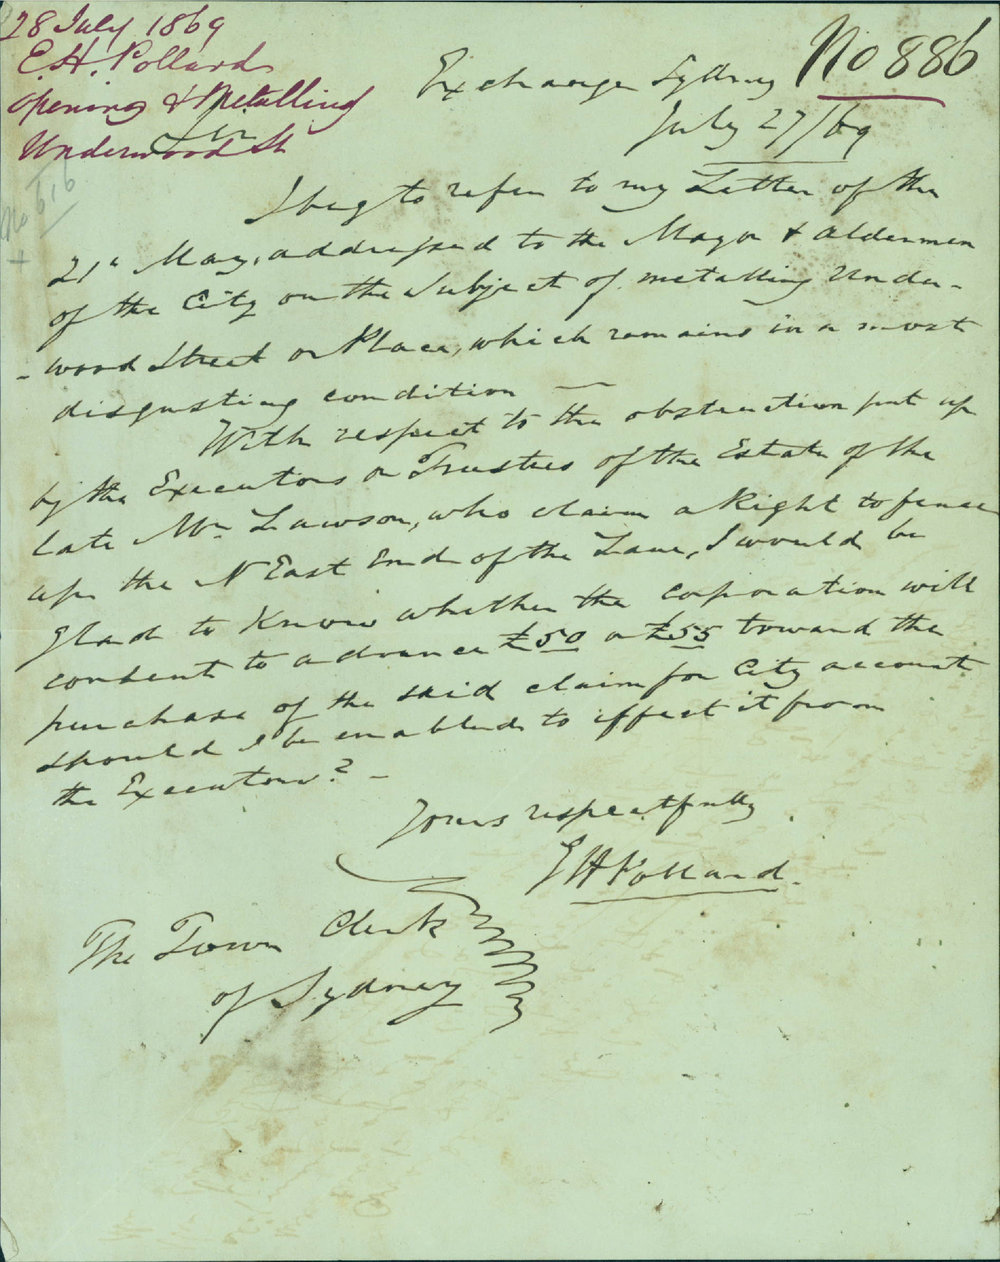 28 July 1869
E.H. Pollard
opening & Metalling
Underwood St
No 616
No 886
Exchange Sydney
July 27/69
Sir
I beg to refer to my Letter of the
21st May, addressed to the Mayor & Aldermen
of the City on the Subject of metalling Under-
-wood Street or Place, which remains in a most
disgusting condition —
With respect to the obstruction put up
by the Executors or Trustees of the Estate of the
late Mr. Lawson, who claim a Right to fence
up the N East End of the Lane, I would be
Glad to Know whether the corporation will
consent to advance £50 or £55 toward the
purchase of the said claim for City account
should I be enabled to effect it from
the Executors? —
Yours respectfully
E H Pollard.
The Town Clerk
of Sydney